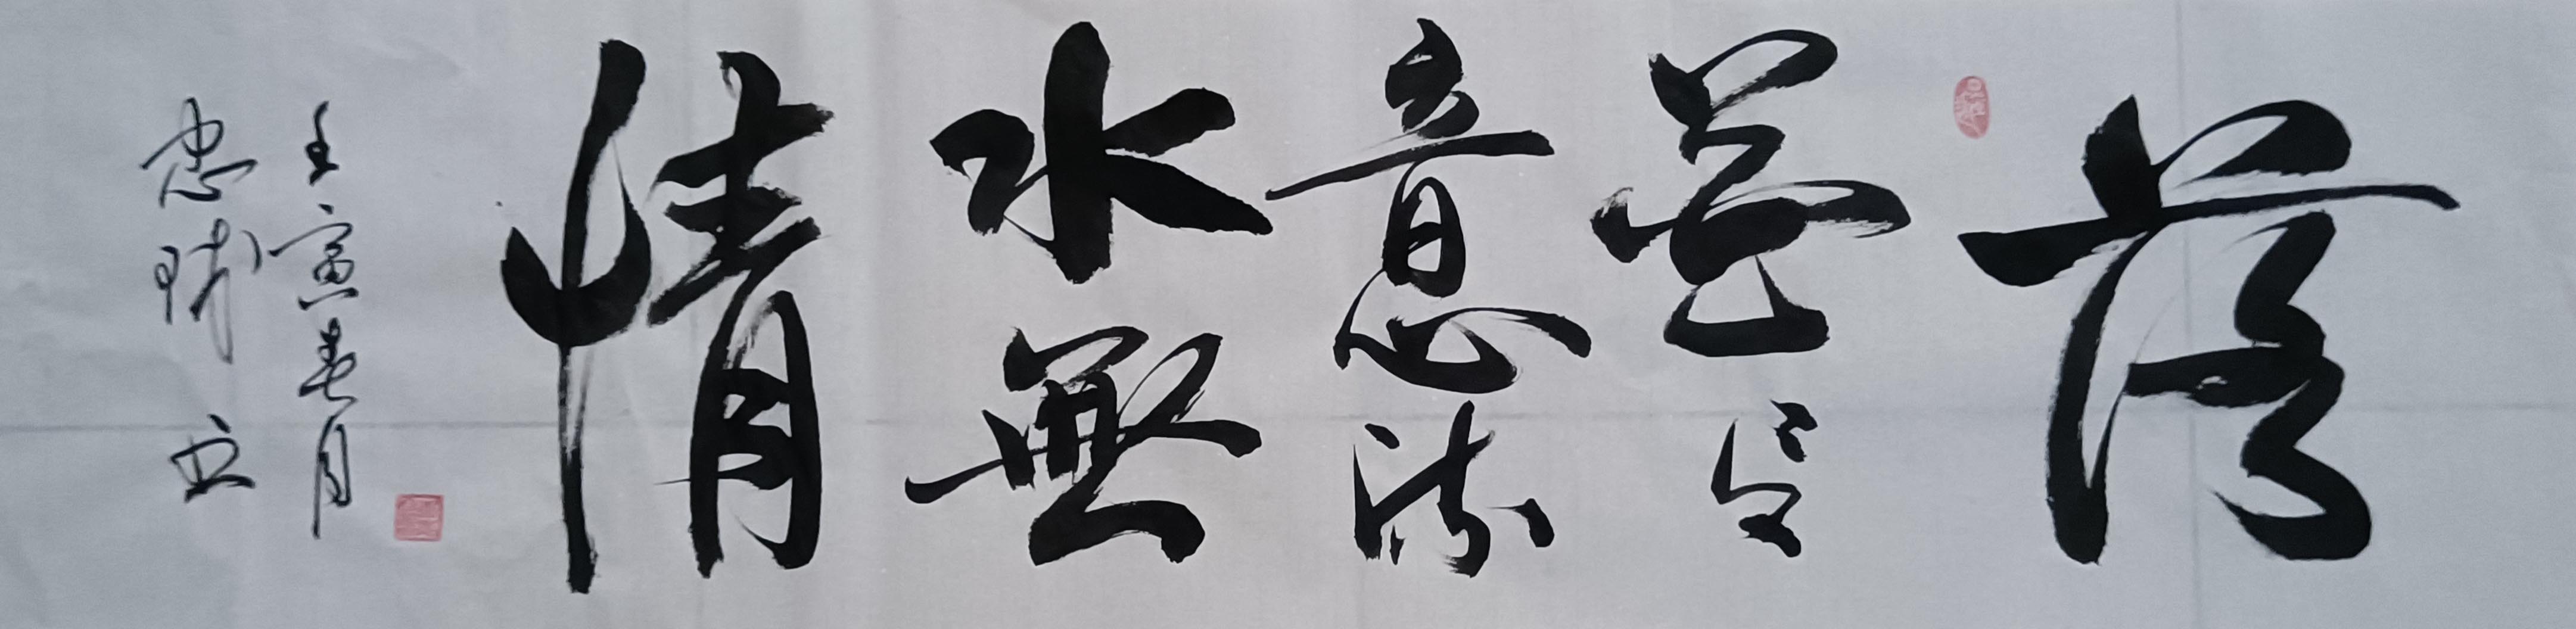 落
花有
意流
水無
情
壬寅春月
忠 书